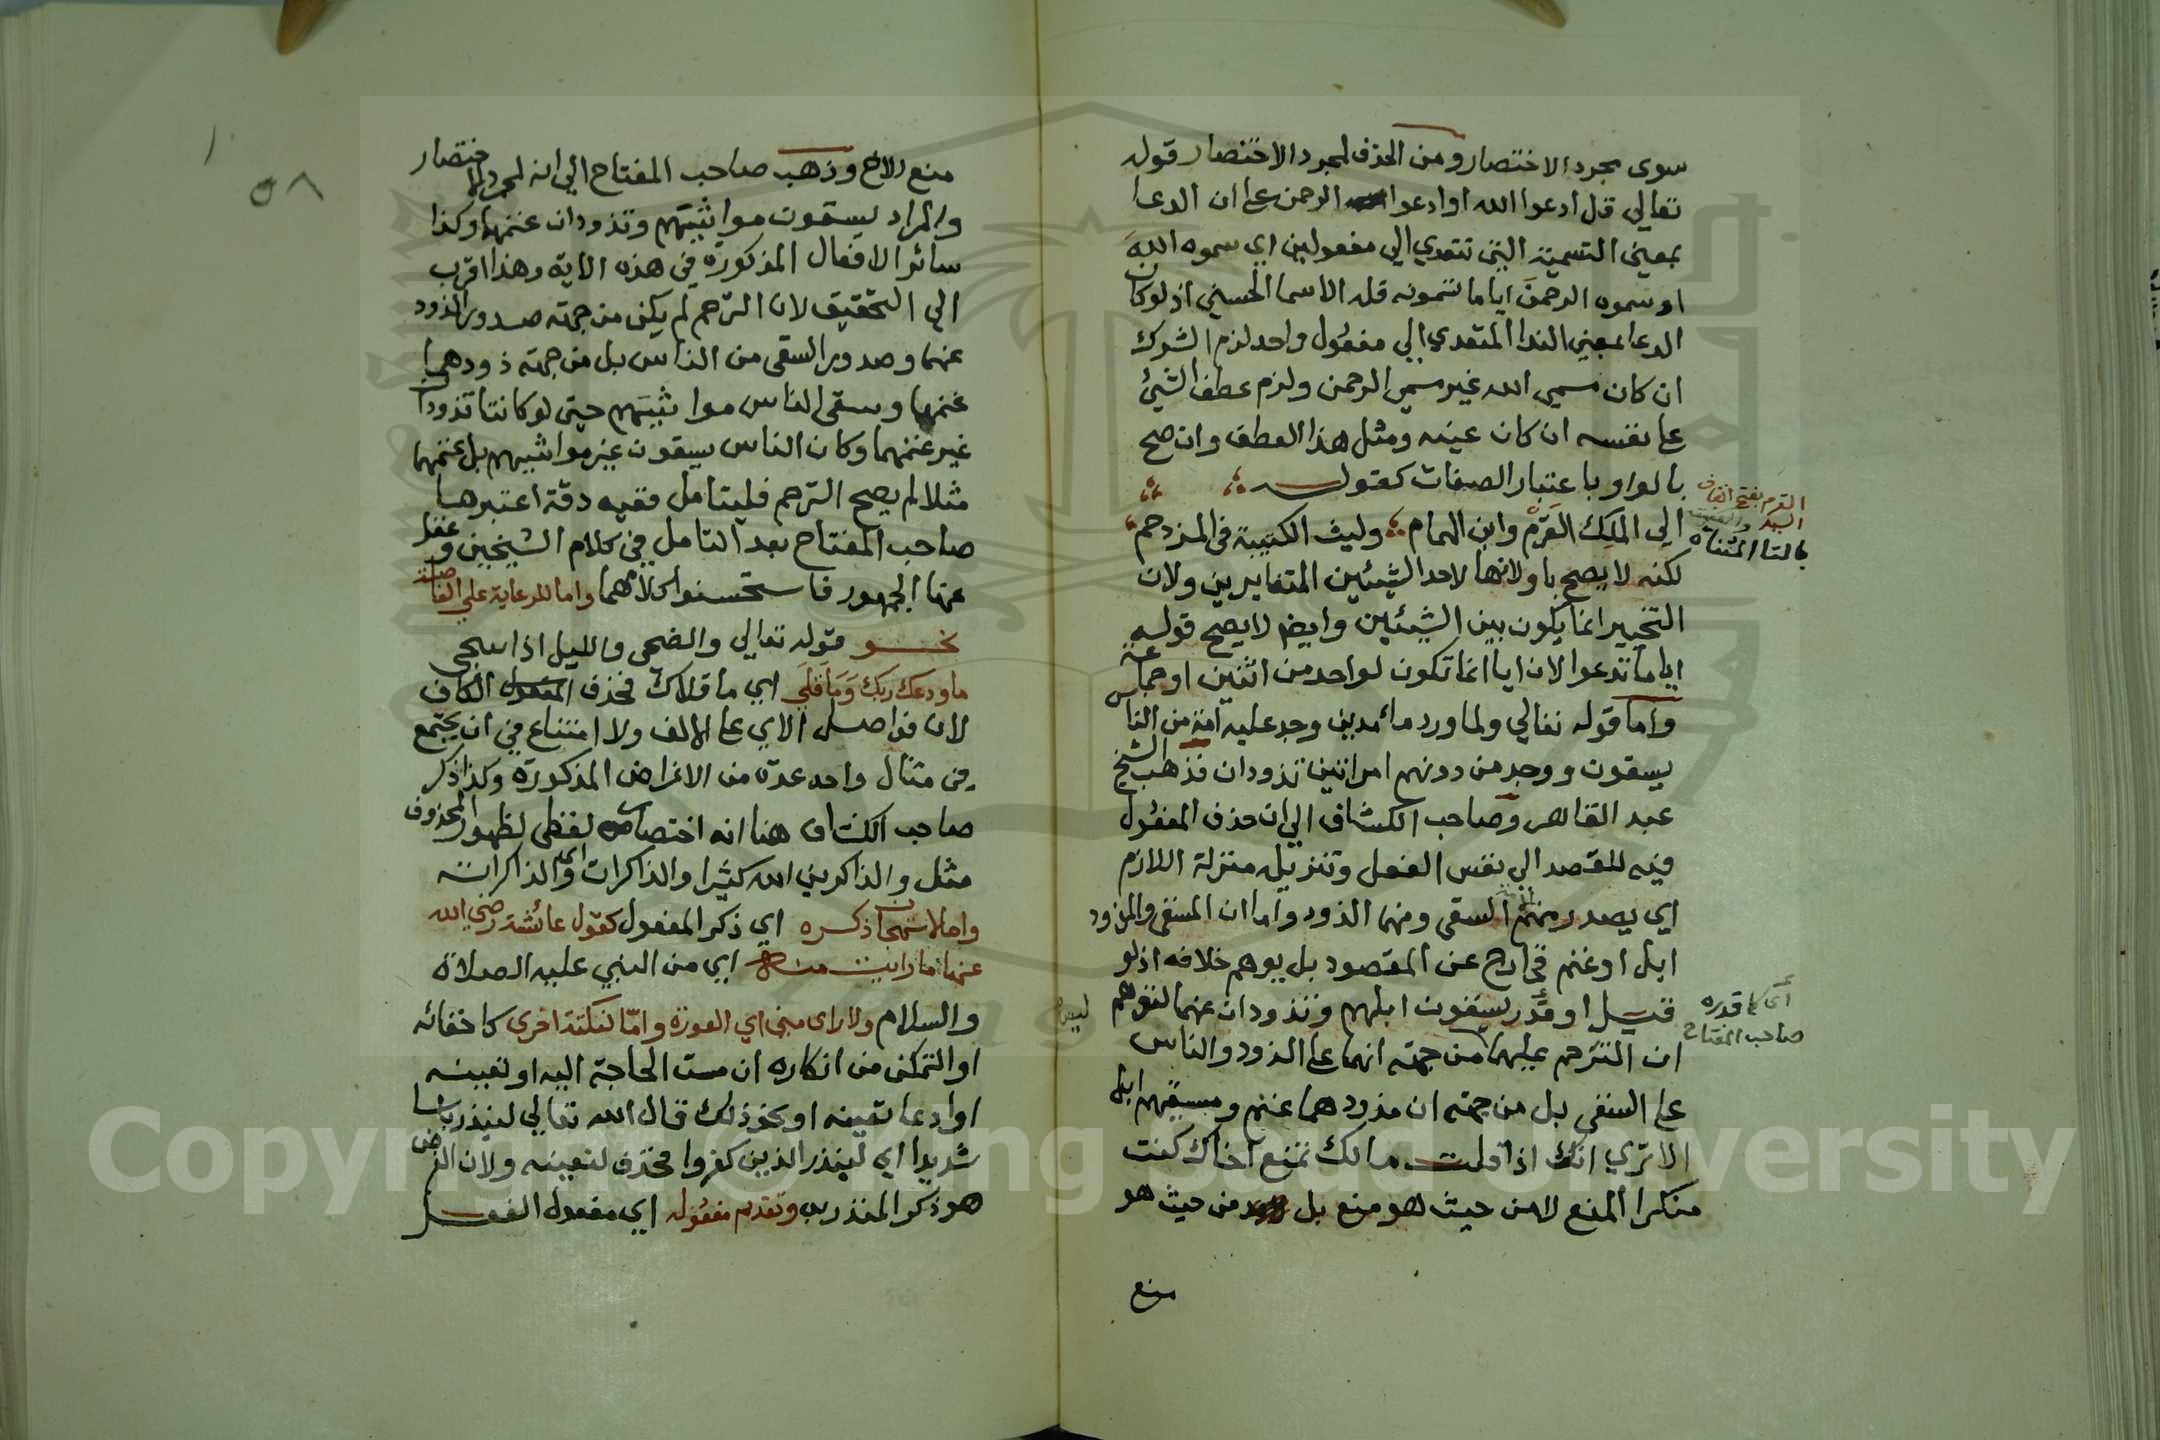 سوى مجرد الاختصار ومن الحذف لمجرد الاختصار قوله
تعالي قل ادعوا الله او ادعوا الرحمن على ان الدعا
بمعني التسمية التي تتعدي الي مفعولين اي سموه اللهَ
او سموه الرحمنَ اياما تسمونه فله الاسما الحسني اذ لو كان
الدعا بمعني الندا المتعدي الي مفعول واحد لزم الشرك
ان كان مسمي الله غير مسمي الرحمن ولزم عطف الشيئ
على نفسه ان كان عينه ومثل هذا العطف وان صح
بالواو باعتبار الصفات كقولـه
الي الملك القَرْم وابن الهمام وليث الكتيبة في المزدحم
لكنه لا يصح باو لانها لاحد الشيئين المتغايرين ولان
التخيير انما يكون بين الشيئين وايضا لا يصح قوله
اياما تدعوا لان ايا انما تكون لواحد من اثنين او جماعة
واما قوله تعالي ولما ورد ماء مدين وجد عليه امة من الناس
يسقون ووجد من دونهم امراتين تذودان فذهب الشيخ
عبد القاهر وصاحب الكشاف الي ان حذف المفعول
فيه للقصد الي نفس الفعل وتنزيله منزلة اللازم
اي يصدر منهم السقي ومنهما الذود واما ان المسقي والمذود
ابل او غنم فخارج عن المقصود بل يوهم خلافه اذ لو
قيل او قدر يسقون ابلهم وتذودان غنمهما لتوهم
ان الترحم عليهما ليس من جهة انهما على الذود والناس
على السقي بل من جهة ان مذودهما غنم ومسقيهم ابل
الا تري انك اذا قلت مالك تمنع اخاك كنت
منكرا المنع لا من حيث هو منع بل من حيث هو
منع
القرم بفتح القاف
السيد
بالتا المثناه
أي كما قدره
صاحب المفتاح
٥٨
منع للاخ وذهب صاحب المفتاح الي انه لمجرد الاختصار
والمراد يسقون مواشيهم وتذودان غنمهما وكذا
سائر الافعال المذكورة في هذه الاية وهذا اقرب
الي التحقيق لان الترحم لم يكن من جهة صدور الذود
عنهما وصدور السقي من الناس بل من جهة ذودهما
غنمهما وسقي الناس مواشيهم حتي لو كانتا تذودان
غير غنمهما وكان الناس يسقون غير مواشيهم بل غنمهما
مثلا لم يصح الترحم فليتامل ففيه دقة اعتبرها
صاحب المفتاح بعد التامل في كلام الشيخين وغفل
عنها الجمهور فاستحسنوا كلامهما واما للرعاية علي الفاصلة
نحـو قوله تعالي والضحي والليل اذا سجي
ما ودعك ربك وَمَا قَلَي اي ما قلاك فحذف المفعول الكاف
لان فواصل الاي على الالف ولا امتناع في ان يجتمع
في مثال واحد عدة من الاغراض المذكورة وكذا ذكر
صاحب الكشاف هنا انه اختصار لفظي لظهور المحذوف
مثل والذاكرين الله كثيرا والذاكرات اي والذاكراته
واما لاستهجان ذكره اي ذكر المفعول كقول عائشة رضي الله
عنها ما رايت منه اي من النبي عليه الصلاة
والسلام ولا راي مني اي العورة وامّا لنكتة اخري كاخفائه
او التمكن من انكاره ان مست الحاجة اليه او تعينه
او ادعا تعينه او نحو ذلك قال الله تعالي لينذر باسا
شديدا اي لينذر الذين كفروا فحذف لتعينه ولان الغرض
هو ذكر المنذر به وتقديم مفعوله اي مفعول الفعـل
Copyright © King Saud University